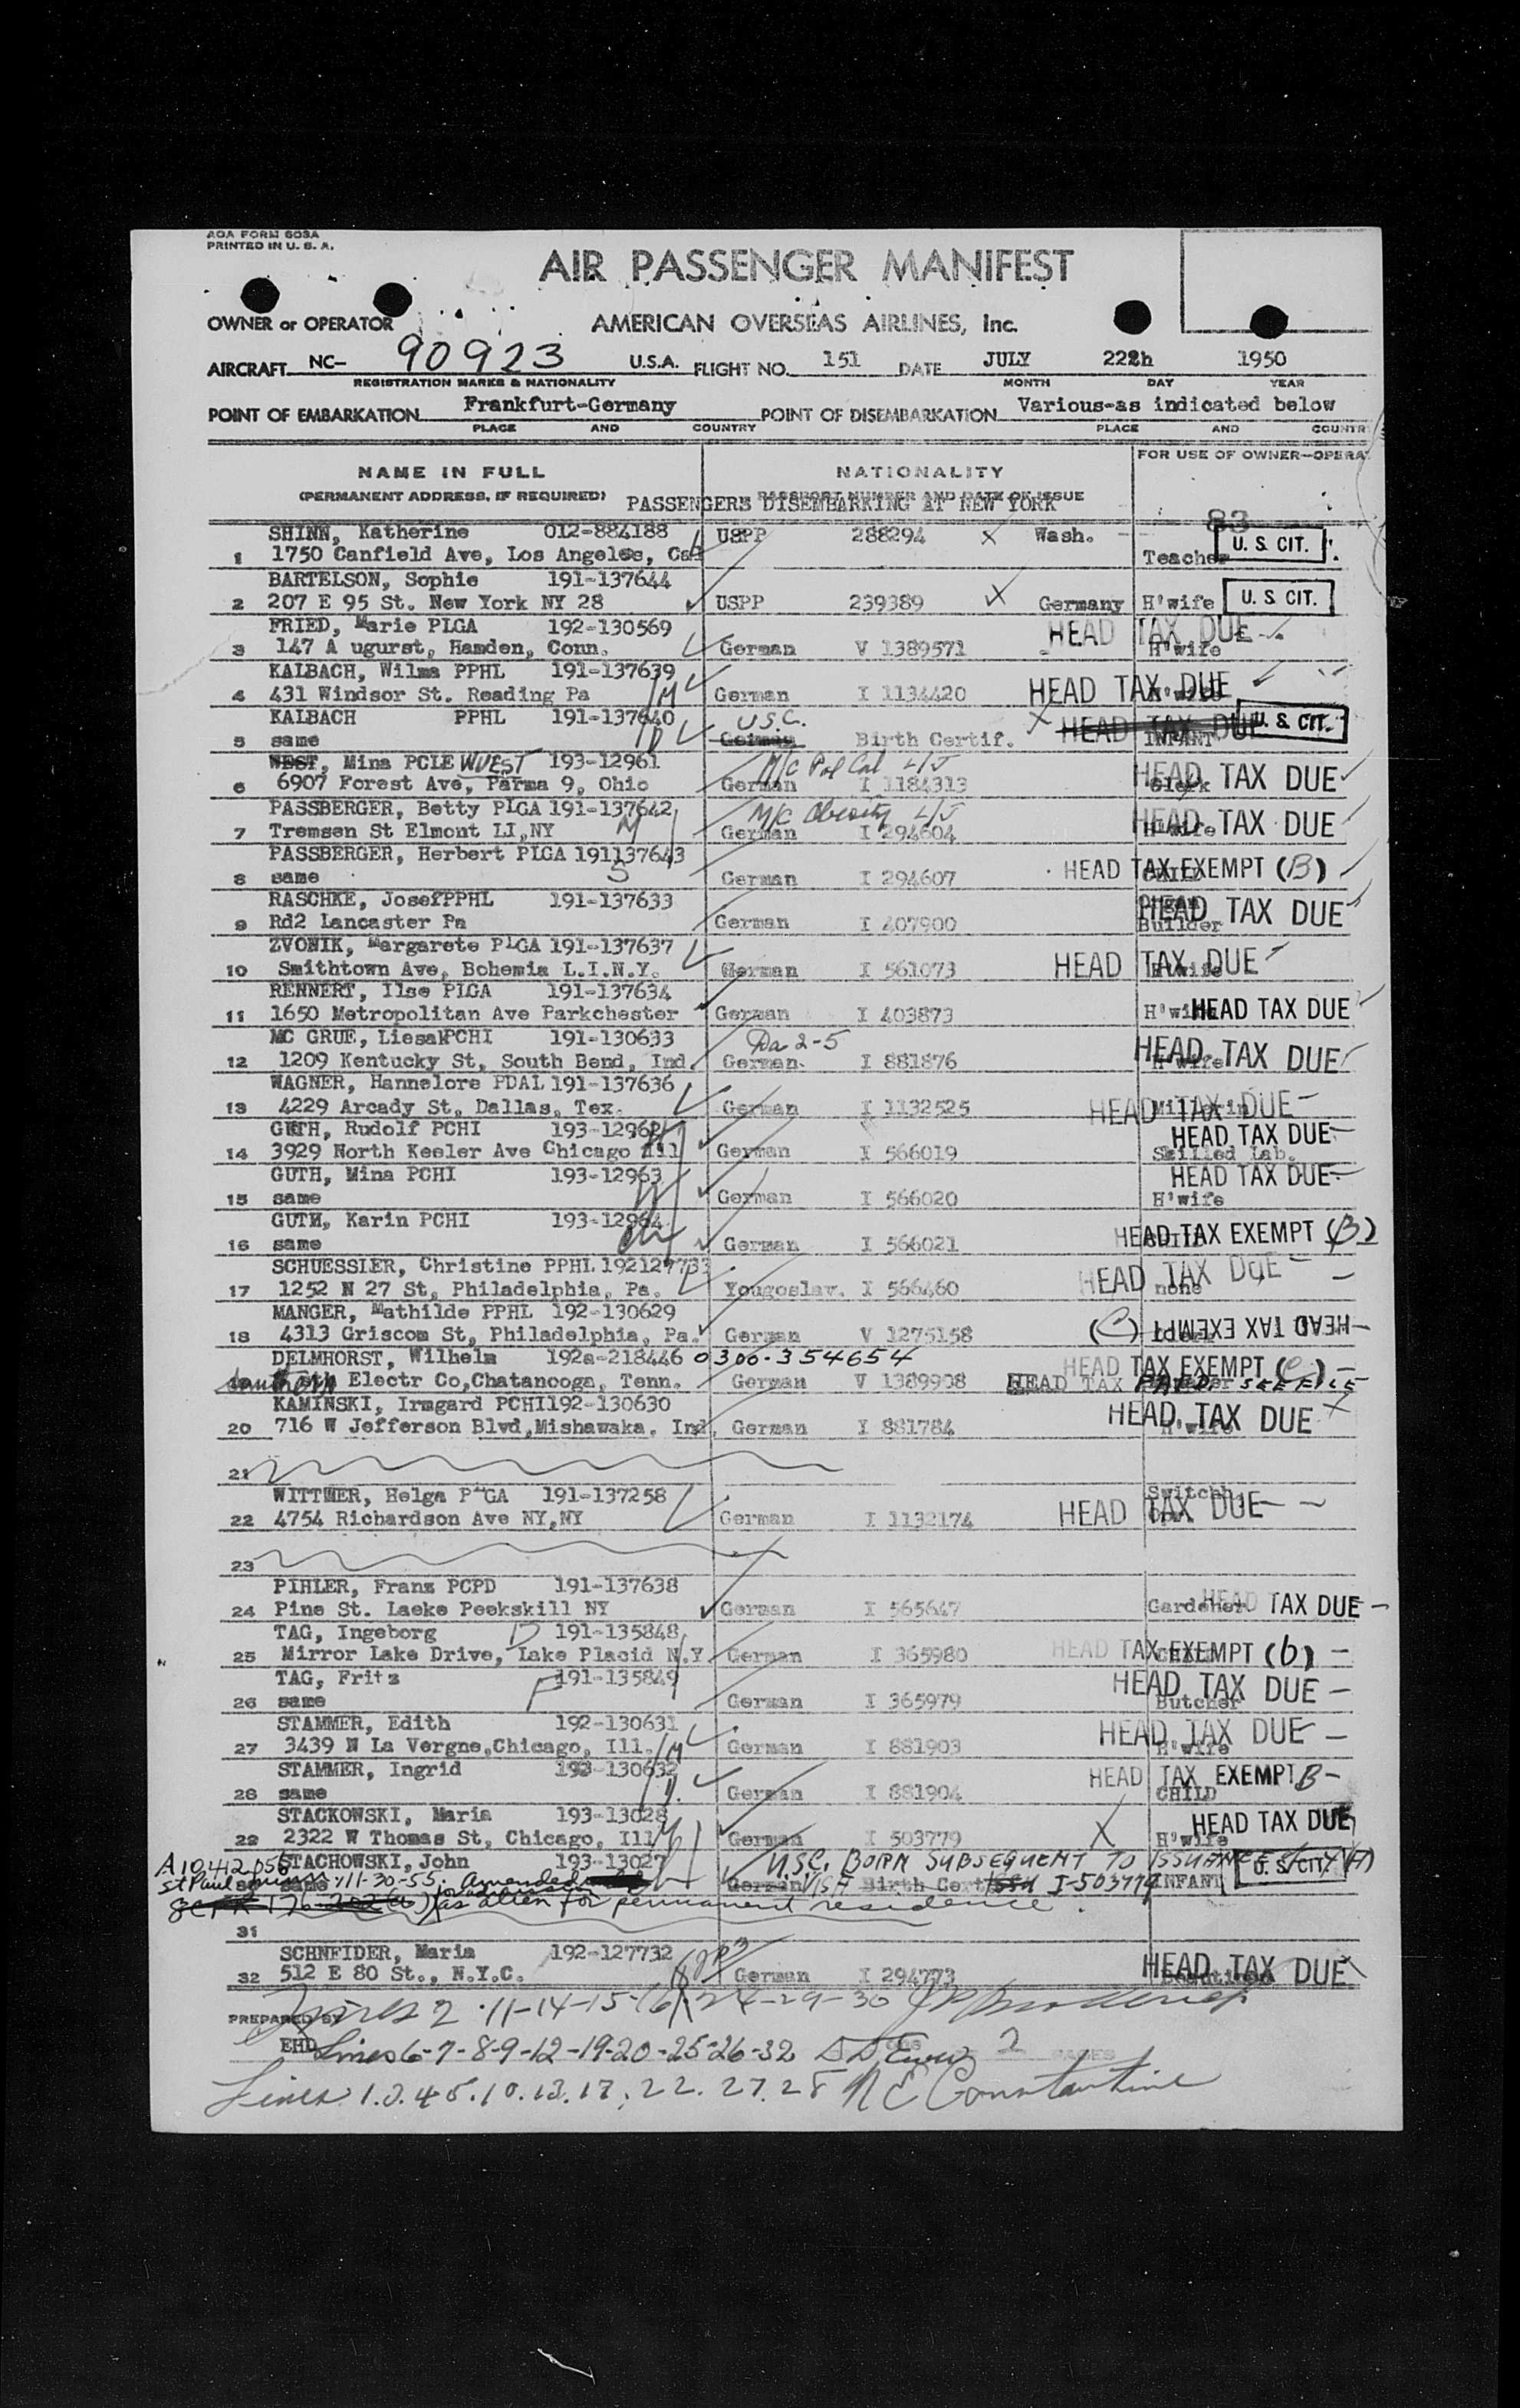 AOA FORM 603A
PRINTED IN U. S. A.
AIR PASSENGER MANIFEST
OWNER or OPERATOR AMERICAN OVERSEAS AIRLINES, Inc.
AIRCRAFT NC- 90923 U.S.A. FLIGHT NO. 151 DATE JULY 222h 1950
REGISTRATION MARKS & NATIONALITY MONTH DAY YEAR
POINT OF EMBARKATION Frankfurt-Germany POINT OF DISEMBARKATION Various-as indicated below
PLACE AND COUNTRY PLACE AND COUNTR
FOR USE OF OWNER—OPERA
NAME IN FULL NATIONALITY
(PERMANENT ADDRESS, IF REQUIRED) PASSPORT NUMBER AND DATE OF ISSUE
PASSENGERS DISEMBARKING AT NEW YORK
83
SHINN, Katherine 012-884188 USPP 288294 x Wash. U. S. CIT.
1 1750 Canfield Ave, Los Angeles, Cal Teacher
BARTELSON, Sophie 191-137644
2 207 E 95 St. New York NY 28 USPP 239389 x Germany H'wife U. S. CIT.
FRIED, Marie PLGA 192-130569 HEAD TAX DUE
3 147 A ugurst, Hamden, Conn. German V 1389571 H'wife
KALBACH, Wilma PPHL 191-137639
4 431 Windsor St. Reading Pa M German I 1134420 HEAD TAX DUE H'wife
KALBACH PPHL 191-137640 U.S.C. X HEAD TAX DUE U. S. CIT.
5 same D German Birth Certif. INFANT
WEST, Mina PCLE WUEST 193-12961 M/C
6 6907 Forest Ave, Parma 9, Ohio German I 1184313 Clerk HEAD TAX DUE
PASSBERGER, Betty PLGA 191-137642 M/C Obesity
7 Tremsen St Elmont LI,NY M German I 294604 H'wife HEAD TAX DUE
PASSBERGER, Herbert PLGA 191137643 HEAD TAX EXEMPT (B)
8 same S German I 294607 CHILD
RASCHKE, JosefPPHL 191-137633 Organ HEAD TAX DUE
9 Rd2 Lancaster Pa German I 407900 Builder
ZVONIK, Margarete PLGA 191-137637
10 Smithtown Ave, Bohemia L.I.N.Y. German I 561073 HEAD TAX DUE H'wife
RENNERT, Ilse PLGA 191-137634
11 1650 Metropolitan Ave Parkchester German I 403873 H'wife HEAD TAX DUE
MC GRUE, LiesalPCHI 191-130633 Da 2-5
12 1209 Kentucky St, South Bend, Ind. German I 881876 H'wife HEAD TAX DUE
WAGNER, Hannelore PDAL 191-137636
13 4229 Arcady St, Dallas, Tex. German I 1132525 HEAD TAX DUE
GUTH, Rudolf PCHI 193-12962 HEAD TAX DUE
14 3929 North Keeler Ave Chicago Ill German I 566019 Skilled Lab.
GUTH, Mina PCHI 193-12963 HEAD TAX DUE
15 same German I 566020 H'wife
GUTH, Karin PCHI 193-12964
16 same German I 566021 HEAD TAX EXEMPT (B) CHILD
SCHUESSLER, Christine PPHL 192127733 HEAD TAX DUE
17 1252 N 27 St, Philadelphia, Pa. Yougoslav. I 566460 none
MANGER, Mathilde PPHL 192-130629
18 4313 Griscom St, Philadelphia, Pa. German V 1275158 HEAD TAX EXEMPT (C)
DELMHORST, Wilhelm 192a-218446 0300-354654 HEAD TAX EXEMPT (C)
Southern Electr Co,Chatanooga, Tenn. German V 1389908 HEAD TAX SEE FILE
KAMINSKI, Irmgard PCHI192-130630
20 716 W Jefferson Blvd,Mishawaka, Ind. German I 881784 HEAD TAX DUE H'wife
21
WITTMER, Helga PLGA 191-137258 Switchb.
22 4754 Richardson Ave NY,NY German I 1132174 HEAD TAX DUE Op.
23
PIHLER, Franz PCPD 191-137638
24 Pine St. Laeke Peekskill NY German I 565647 Gardener HEAD TAX DUE
TAG, Ingeborg D 191-135848
25 Mirror Lake Drive, Lake Placid N.Y. German I 365980 HEAD TAX EXEMPT (b) CHILD
TAG, Fritz F 191-135849
26 same German I 365979 HEAD TAX DUE Butcher
STAMMER, Edith 192-130631
27 3439 N La Vergne,Chicago, Ill. M German I 881903 HEAD TAX DUE H'wife
STAMMER, Ingrid 192-130632
28 same D. German I 881904 HEAD TAX EXEMPT B CHILD
STACKOWSKI, Maria 193-13028
29 2322 W Thomas St, Chicago, Ill M German I 503779 X H'wife HEAD TAX DUE
A10412056 STACHOWSKI, John 193-13027 U.S.C. BORN SUBSEQUENT TO ISSUANCE U. S. CIT.
St Paul 11-30-55. Amended German VISA Birth Cert I-503779 INFANT
as alien for permanent residence.
31
SCHNEIDER, Maria 192-127732
32 512 E 80 St., N.Y.C. German I 294773 HEAD TAX DUE
PREPARED BY Lines 2-11-14-15-16-24-29-30
EHD Lines 6-7-8-9-12-19-20-25-26-32 2 PAGES
Lines 1.3.4.5.10.13.17.22.27.28 N E Constantine